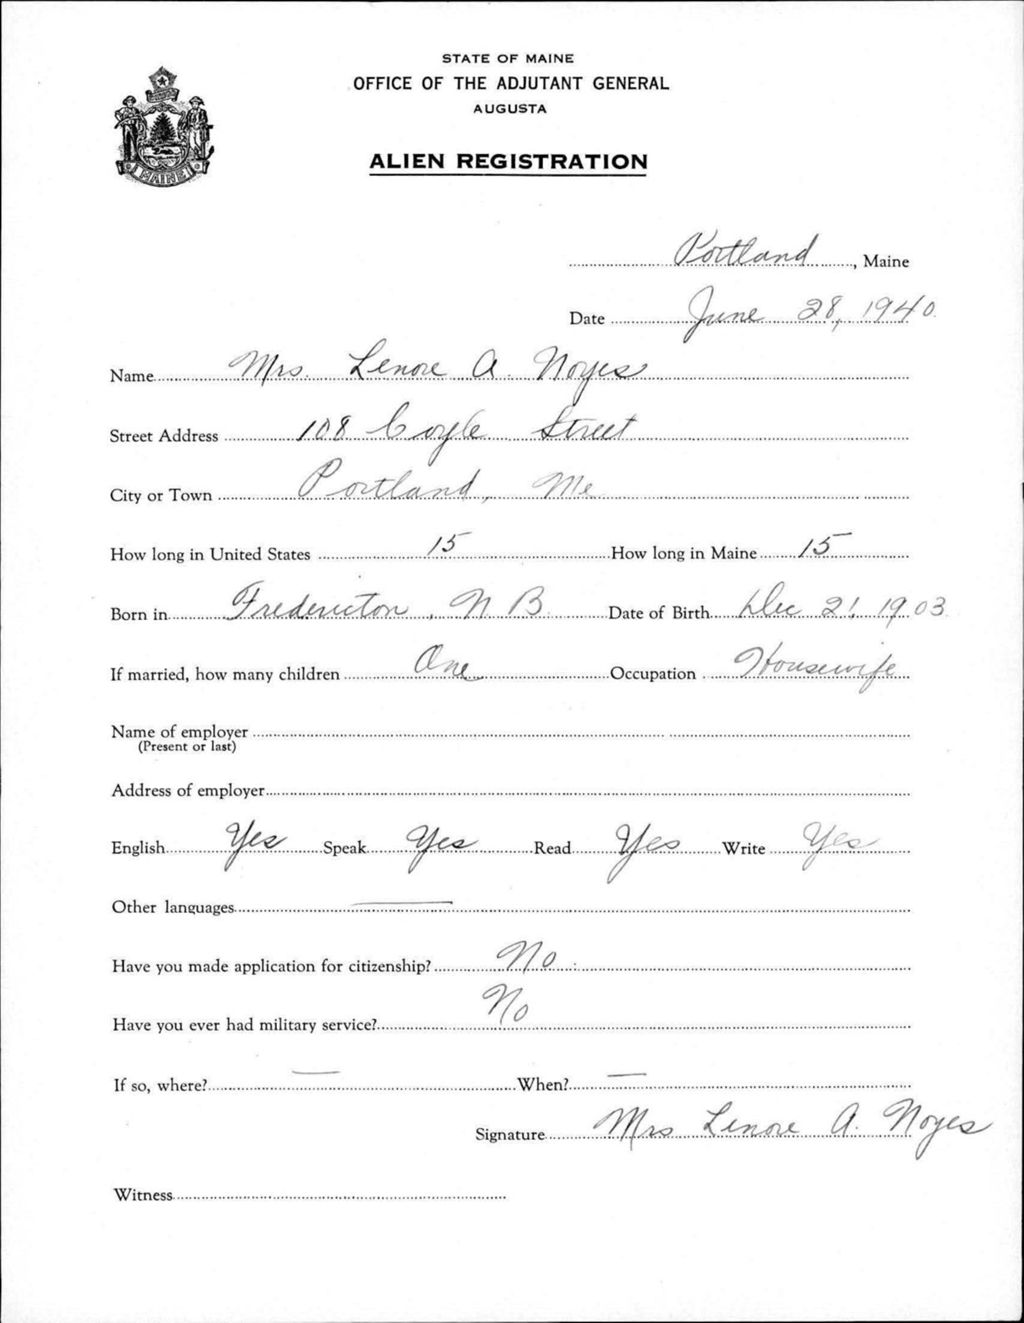 STATE OF MAINE
OFFICE OF THE ADJUTANT GENERAL
AUGUSTA
ALIEN REGISTRATION
MAINE
Portland, Maine
Date June 28, 1940
Name Mrs. Lenore A. Noyes
Street Address 108 Coyle Street
City or Town Portland, Me
How long in United States 15 How long in Maine 15
Born in Fredericton, N B Date of Birth Dec 21 1903
If married, how many children One Occupation Housewife
Name of employer
(Present or last)
Address of employer
English Yes Speak Yes Read Yes Write Yes
Other languages
Have you made application for citizenship? No
Have you ever had military service? No
If so, where? When?
Signature Mrs Lenore A. Noyes
Witness